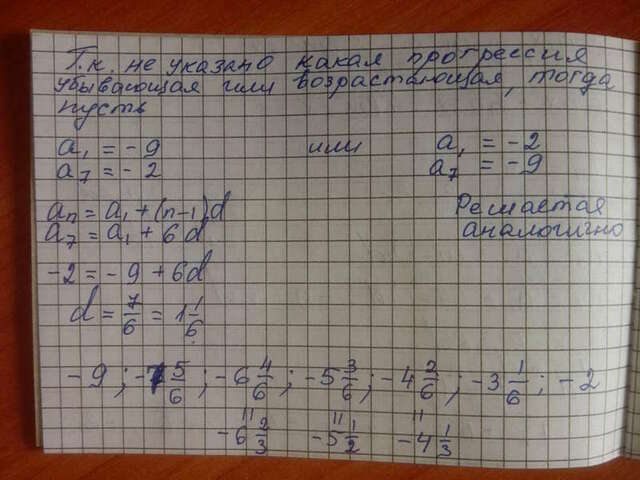 Т.к. не указано какая прогрессия
убывающая или возрастающая, тогда
пусть
a₁ = -9 или a₁ = -2
a₇ = -2 a₇ = -9
aₙ = a₁ + (n-1)d Решается
a₇ = a₁ + 6d аналогично
-2 = -9 + 6d
d = 7/6 = 1 1/6
-9 ; -7 5/6 ; -6 4/6 ; -5 3/6 ; -4 2/6 ; -3 1/6 ; -2
= = =
-6 2/3 -5 1/2 -4 1/3